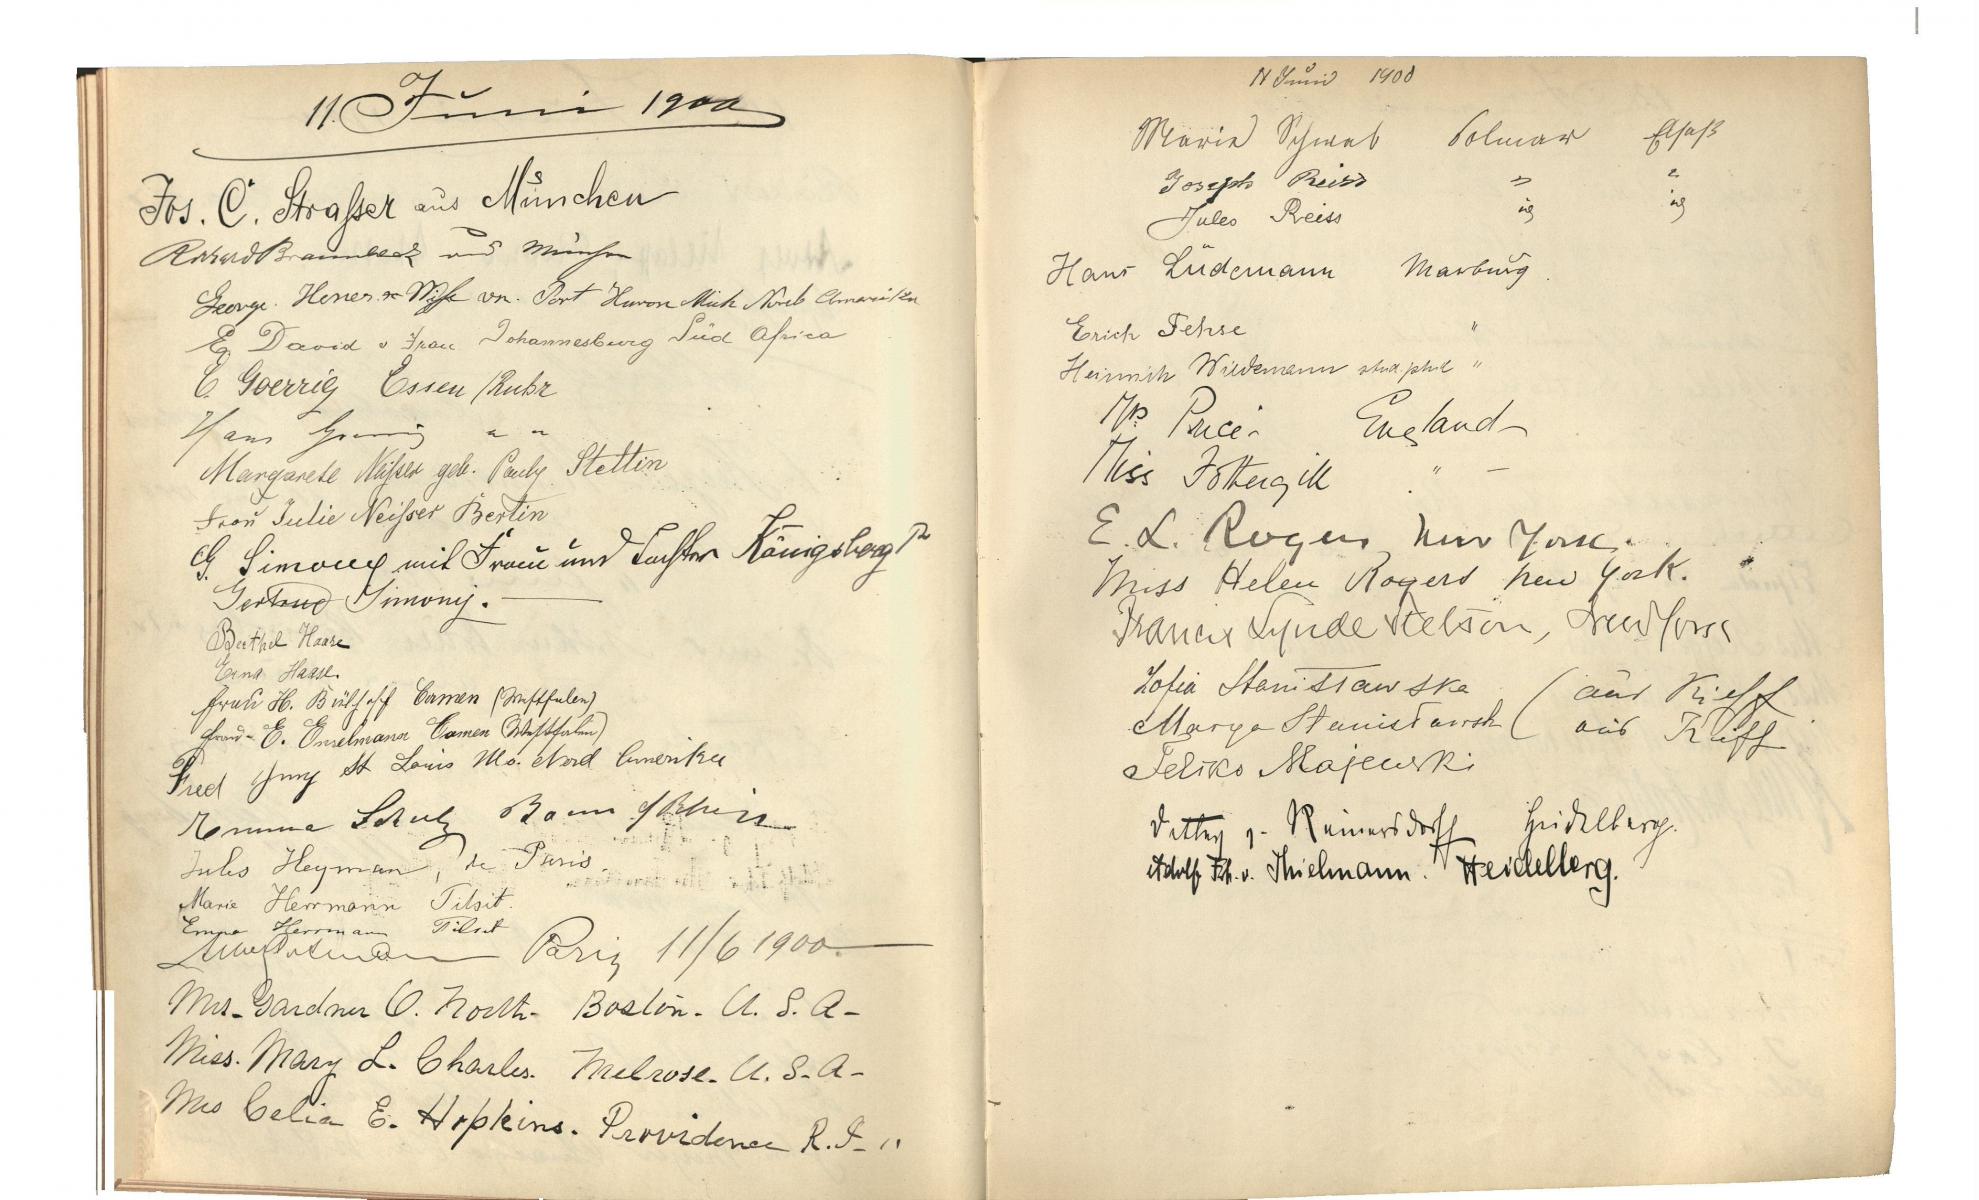 11. Juni 1900
Jos. C. Straßer aus München
Richard Braunbeck aus München
George Hener & Wife vn. Port Huron Mich Nord Amerika
E. David u Frau Johannesburg Süd Africa
E. Goerrig Essen / Ruhr
Hans Goerrig " "
Margarete Neißer geb. Pauly Stettin
Frau Julie Neißer Berlin
G. Simony mit Frau und Tochter Königsberg Pr
Gertrud Simony.
Berthel Haase
Erna Haase.
Frau H. Camen (Westfalen)
Frau E. Camen (Westfalen)
Fred St Louis Mo. Nord Amerika
Emma Schulz Bonn a/Rhein
Jules Heyman, de Paris.
Marie Herrmann Tilsit.
Emma Herrmann Tilsit
Paris 11/6 1900.
Mrs. Gardner O. North - Boston - U. S. A -
Miss. Mary L. Charles. Melrose - U. S. A -
Mrs Celia E. Hopkins. Providence R. I - "
11 Juni 1900
Marie Schwab Colmar Elsaß
Joseph Reiss " "
Jules Reiss " "
Hans Lüdemann Marburg.
Erich Fehse "
Heinrich Wiedemann stud. phil "
Price - England -
Miss "
E. L. Rogers New York.
Miss Helen Rogers New York.
Francis Lynde Stetson, New York
Zofia Stanisławska ( aus Kieff
Marya Stanisławsk ( aus Kieff
Feliks Majewski
v. Reinersdorff Heidelberg.
Adolf Frh. v. Thielmann. Heidelberg.